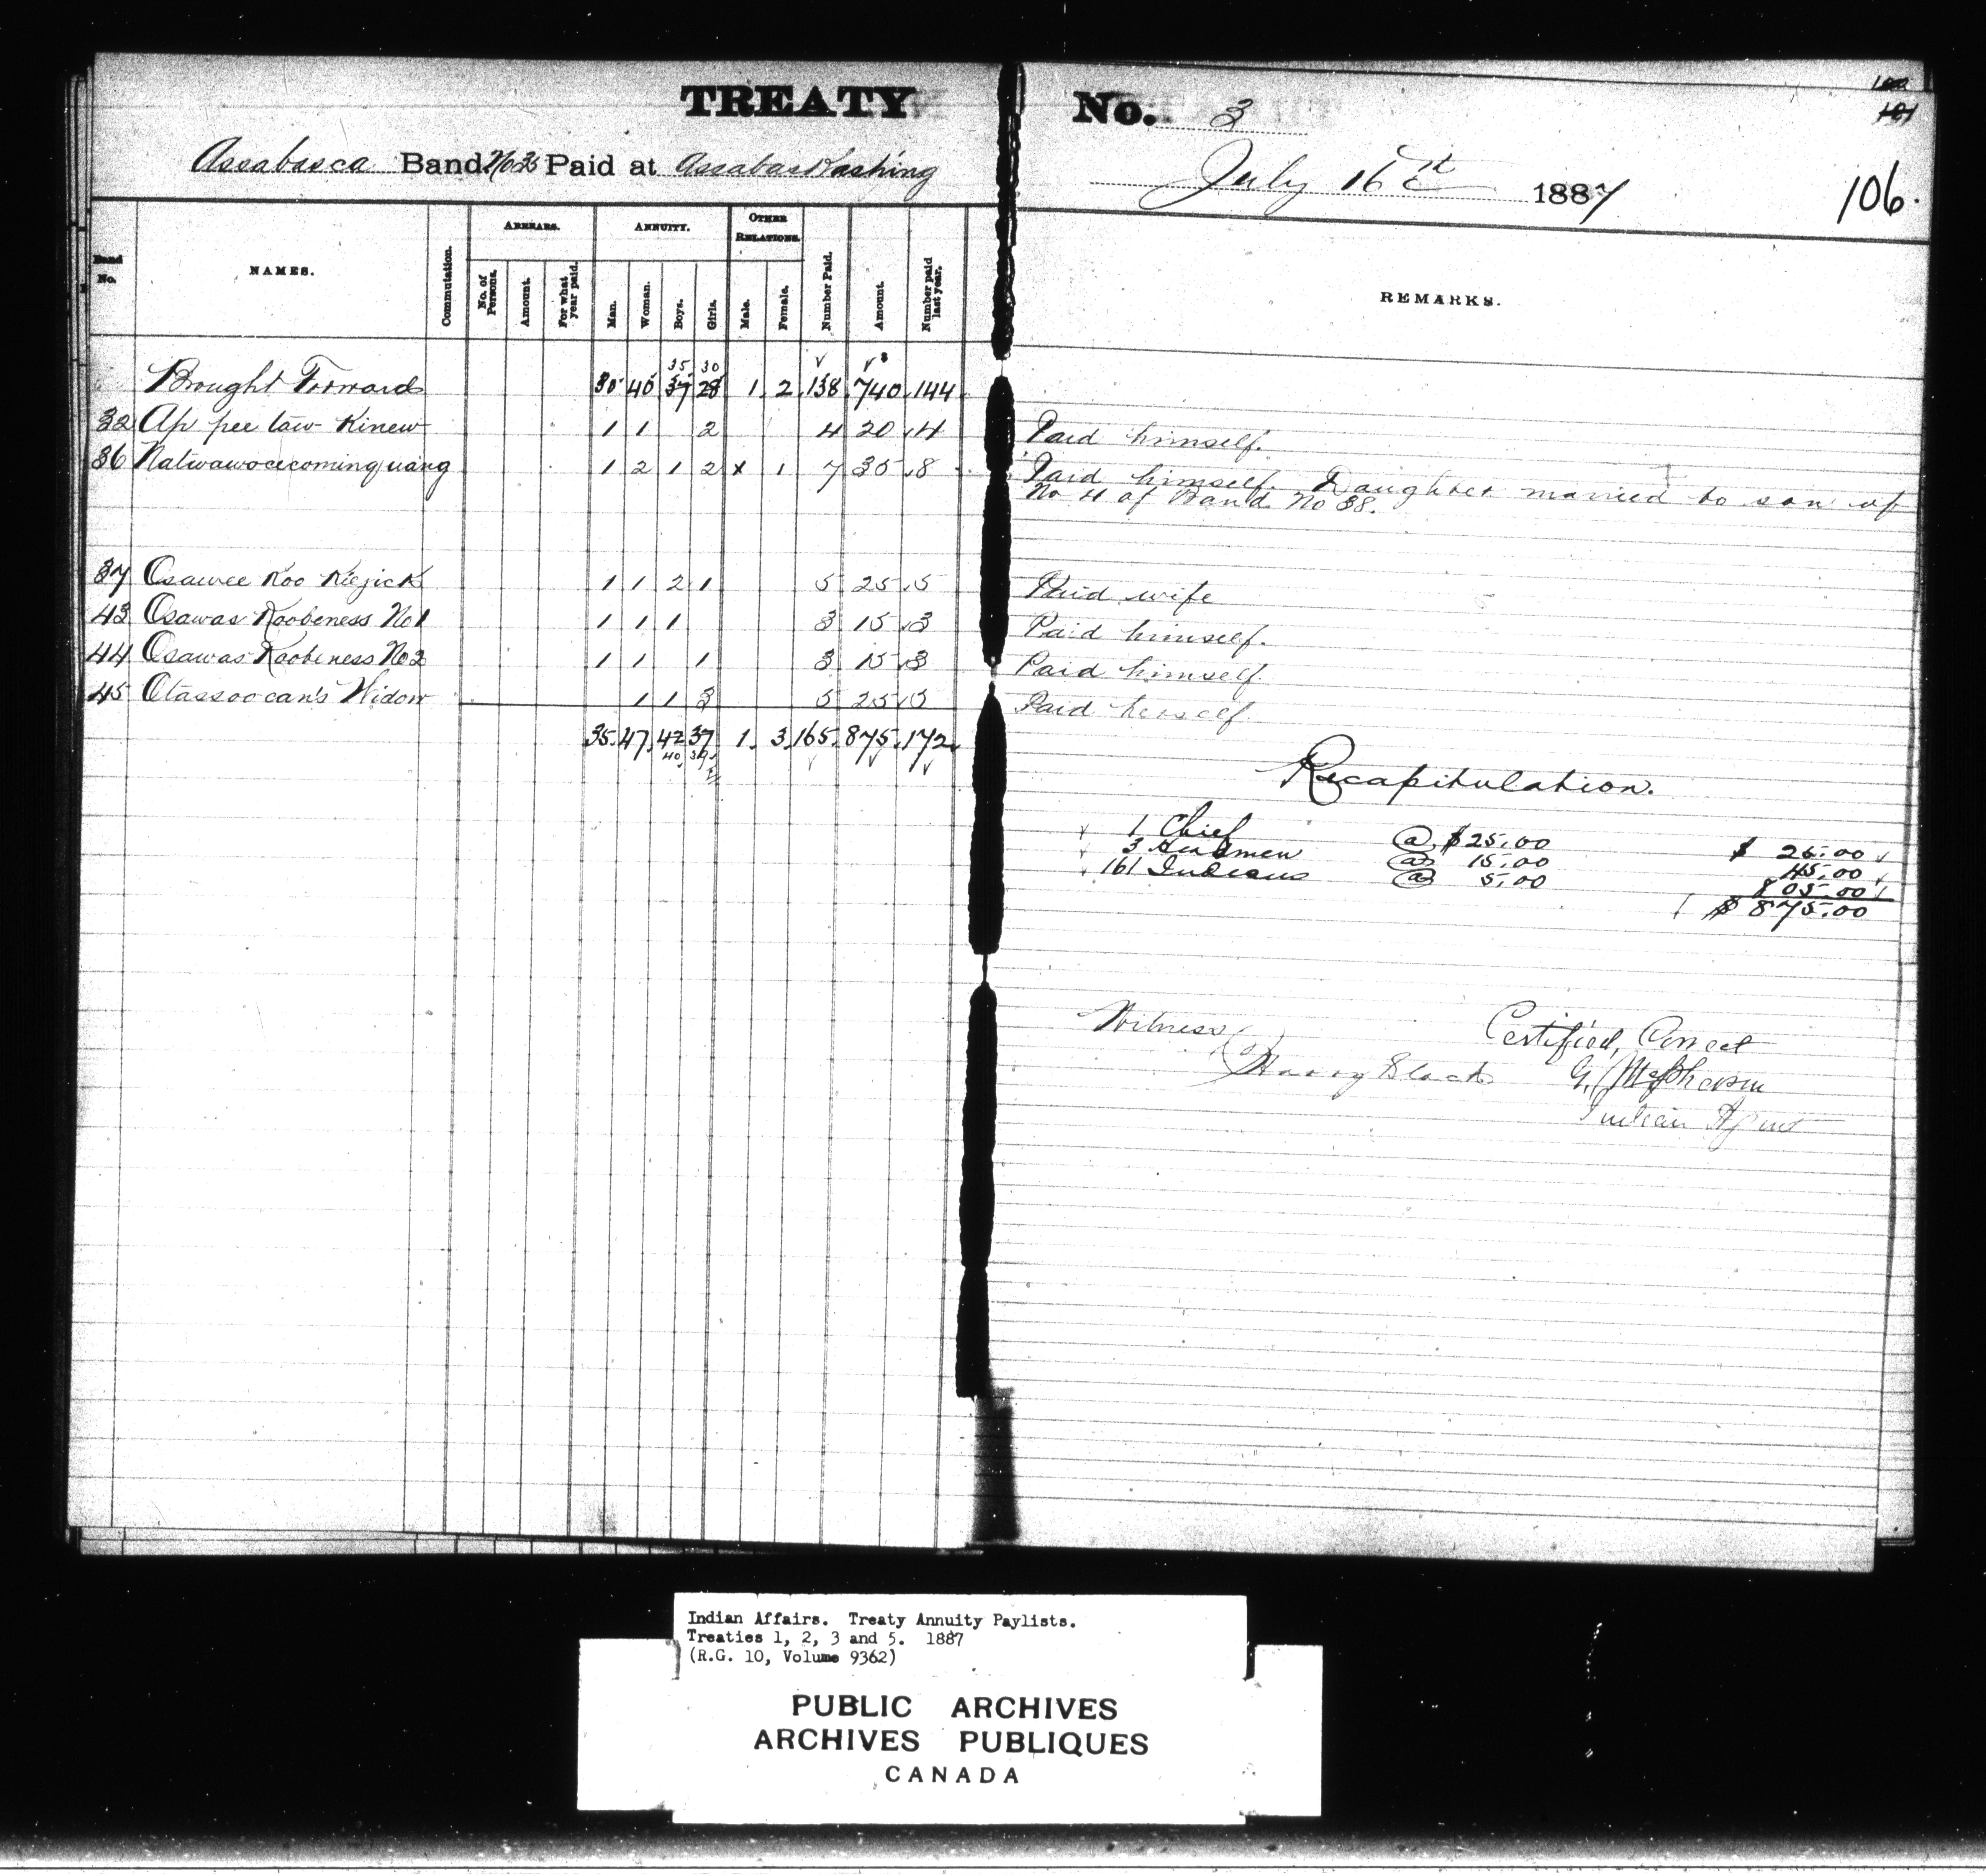 102
101
TREATY No. 3
Assabasca Band No 35 Paid at Assabaskashing July 16th 1887 106.
Band No. NAMES. Commutation. ARREARS. No. of Persons. Amount. For what year paid. ANNUITY. Man. Woman. Boys. Girls. OTHER RELATIONS. Male. Female. Number Paid. Amount. Number paid last year. REMARKS.
35 30
Brought Forward 30 40 37 28 1 2 138 740 144
32 Ap pee taw Kinew 1 1 2 4 20 4 Paid himself.
36 Natwawocecomingquaing 1 2 1 2 x 1 7 35 8 Paid himself. Daughter married to son of
No 4 of Band No 38.
37 Osawee Koo Kegick 1 1 2 1 5 25 5 Paid wife
43 Osawas Koobeness No 1 1 1 1 3 15 3 Paid himself.
44 Osawas Koobeness No 2 1 1 1 3 15 3 Paid himself.
45 Otassoocan's Widow 1 1 3 5 25 5 Paid herself.
35 47 42 37 1 3 165 875 172
40 39
Recapitulation.
1 Chief @ $25.00 $ 25.00
3 Headmen @ 15.00 45.00
161 Indians @ 5.00 805.00
$ 875.00
Witness Certified, Correct
Harry Black G. McPherson
Indian Agent
Indian Affairs. Treaty Annuity Paylists.
Treaties 1, 2, 3 and 5. 1887
(R.G. 10, Volume 9362)
PUBLIC ARCHIVES
ARCHIVES PUBLIQUES
CANADA